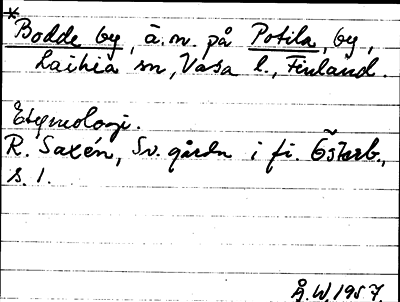 *Bodde by, ä.n. på Potila, by,
Laihia sn, Vasa l., Finland.
Etymologi.
R. Saxén, Sv. gårdn i fi. Österb.,
s. 1.
Å.W. 1957.